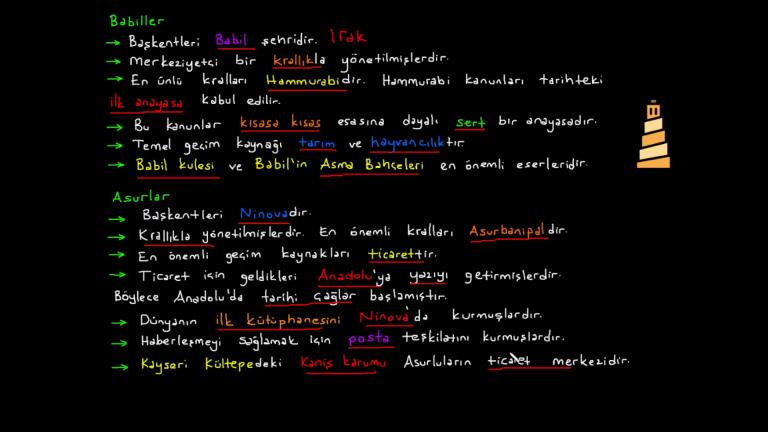 Babiller
→ Başkentleri Babil şehridir. Irak
→ Merkeziyetçi bir krallıkla yönetilmişlerdir.
→ En ünlü kralları Hammurabidir. Hammurabi kanunları tarihteki
ilk anayasa kabul edilir.
→ Bu kanunlar kısasa kısas esasına dayalı sert bir anayasadır.
→ Temel geçim kaynağı tarım ve hayvancılıktır.
→ Babil kulesi ve Babil'in Asma Bahçeleri en önemli eserleridir.
Asurlar
→ Başkentleri Ninovadır.
→ Krallıkla yönetilmişlerdir. En önemli kralları Asurbanipaldir.
→ En önemli geçim kaynakları ticarettir.
→ Ticaret için geldikleri Anadolu'ya yazıyı getirmişlerdir.
Böylece Anadolu'da tarihi çağlar başlamıştır.
→ Dünyanın ilk kütüphanesini Ninova'da kurmuşlardır.
→ Haberleşmeyi sağlamak için posta teşkilatını kurmuşlardır.
→ Kayseri Kültepedeki Kaniş karumu Asurluların ticaret merkezidir.